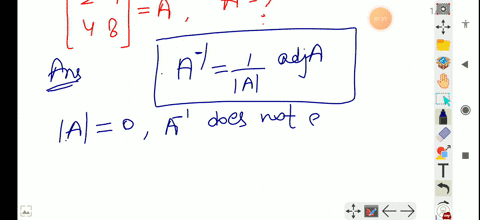 4 8 ] = A,
Ans
A⁻¹ = 1/|A| adjA
|A| = 0, A⁻¹ does not e